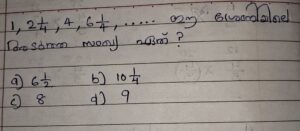 1, 2¼, 4, 6¼, ..... ഈ ശ്രേണിയിലെ
അടുത്ത സംഖ്യ ഏത് ?
a) 6½ b) 10¼
c) 8 d) 9